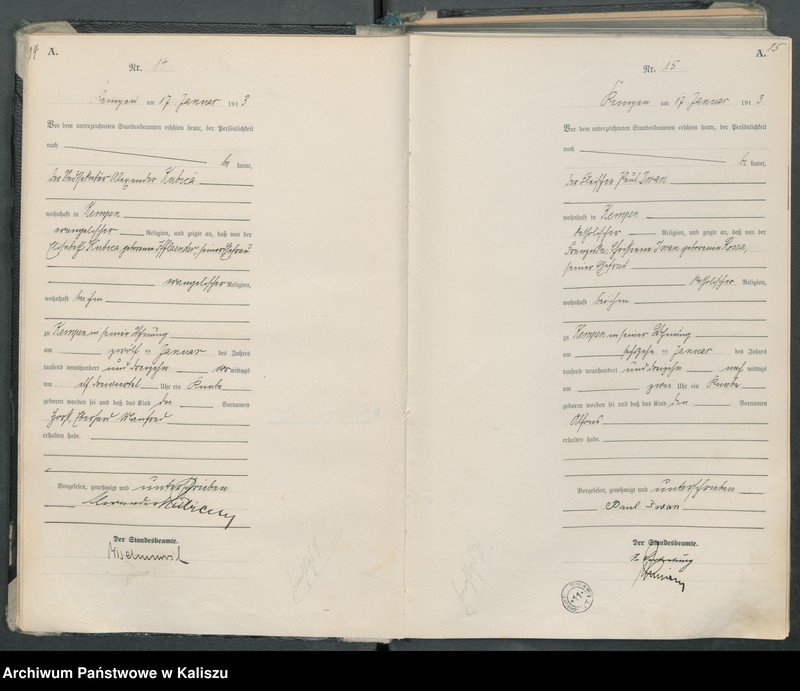 14
A.
Nr. 14
Kempen am 17 Januar 1913
Vor dem unterzeichneten Standesbeamten erschien heute, der Persönlichkeit
nach
be kannt,
der Alexander Kubica
wohnhaft in Kempen
evangelischer Religion, und zeigte an, daß von der
Elisabeth Kubica geborenen seiner Ehefrau
evangelischer Religion,
wohnhaft bei ihm
zu Kempen in seiner Wohnung
am zwölf ten Januar des Jahres
tausend neunhundert und dreizehn vor mittags
um elf dreiviertel Uhr ein Knabe
geboren worden sei und daß das Kind die Vornamen
Horst, Eberhard Manfred
erhalten habe.
Vorgelesen, genehmigt und unterschrieben
Alexander Kubica
Der Standesbeamte.
15
A.
Nr. 15
Kempen am 17 Januar 1913
Vor dem unterzeichneten Standesbeamten erschien heute, der Persönlichkeit
nach
be kannt,
der Paul Iwan
wohnhaft in Kempen
katholischer Religion, und zeigte an, daß von der
Franziska, Christiane Iwan geborenen
seiner Ehefrau
katholischer Religion,
wohnhaft bei ihm
zu Kempen in seiner Wohnung
am sechzehn ten Januar des Jahres
tausend neunhundert und dreizehn nach mittags
um zwei Uhr ein Knabe
geboren worden sei und daß das Kind den Vornamen
Alfons
erhalten habe.
Vorgelesen, genehmigt und unterschrieben
Paul Iwan
Der Standesbeamte.
In Vertretung
Archiwum Państwowe w Kaliszu